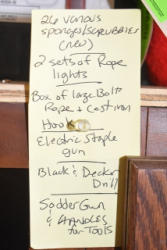 26 various
sponges/scrubbies
(new)
2 sets of Rope
lights
Box of large Bolts
Rope + cast iron
Hooks
Electric Staple
gun
Black & Decker
Drill
Sodder Gun
& Handles
for Tools